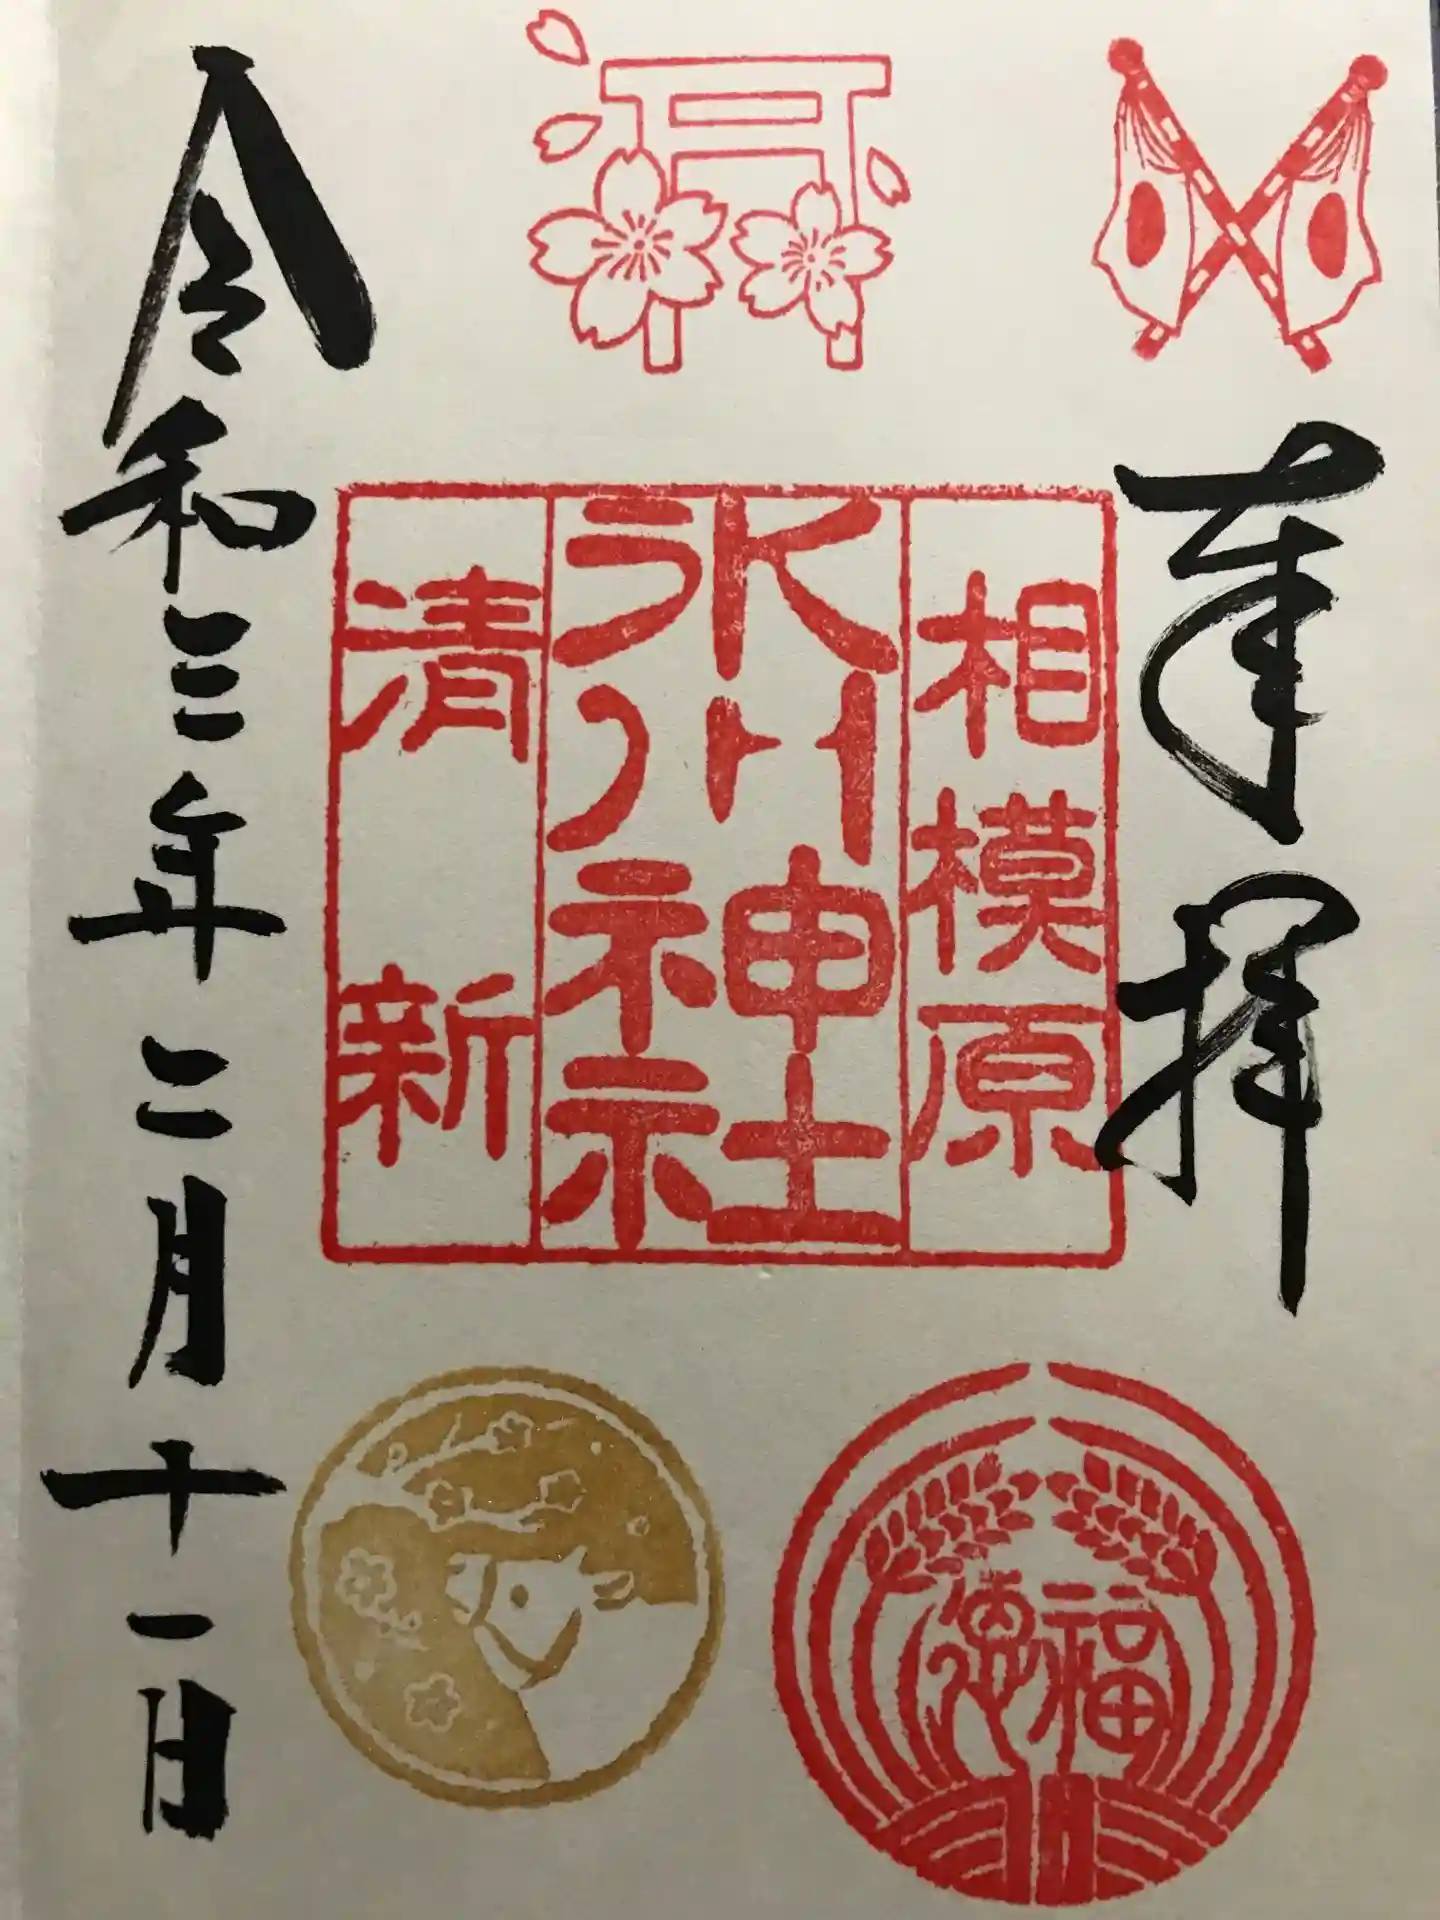 奉拝
相模原
氷川神社
清新
令和三年二月十一日
福徳